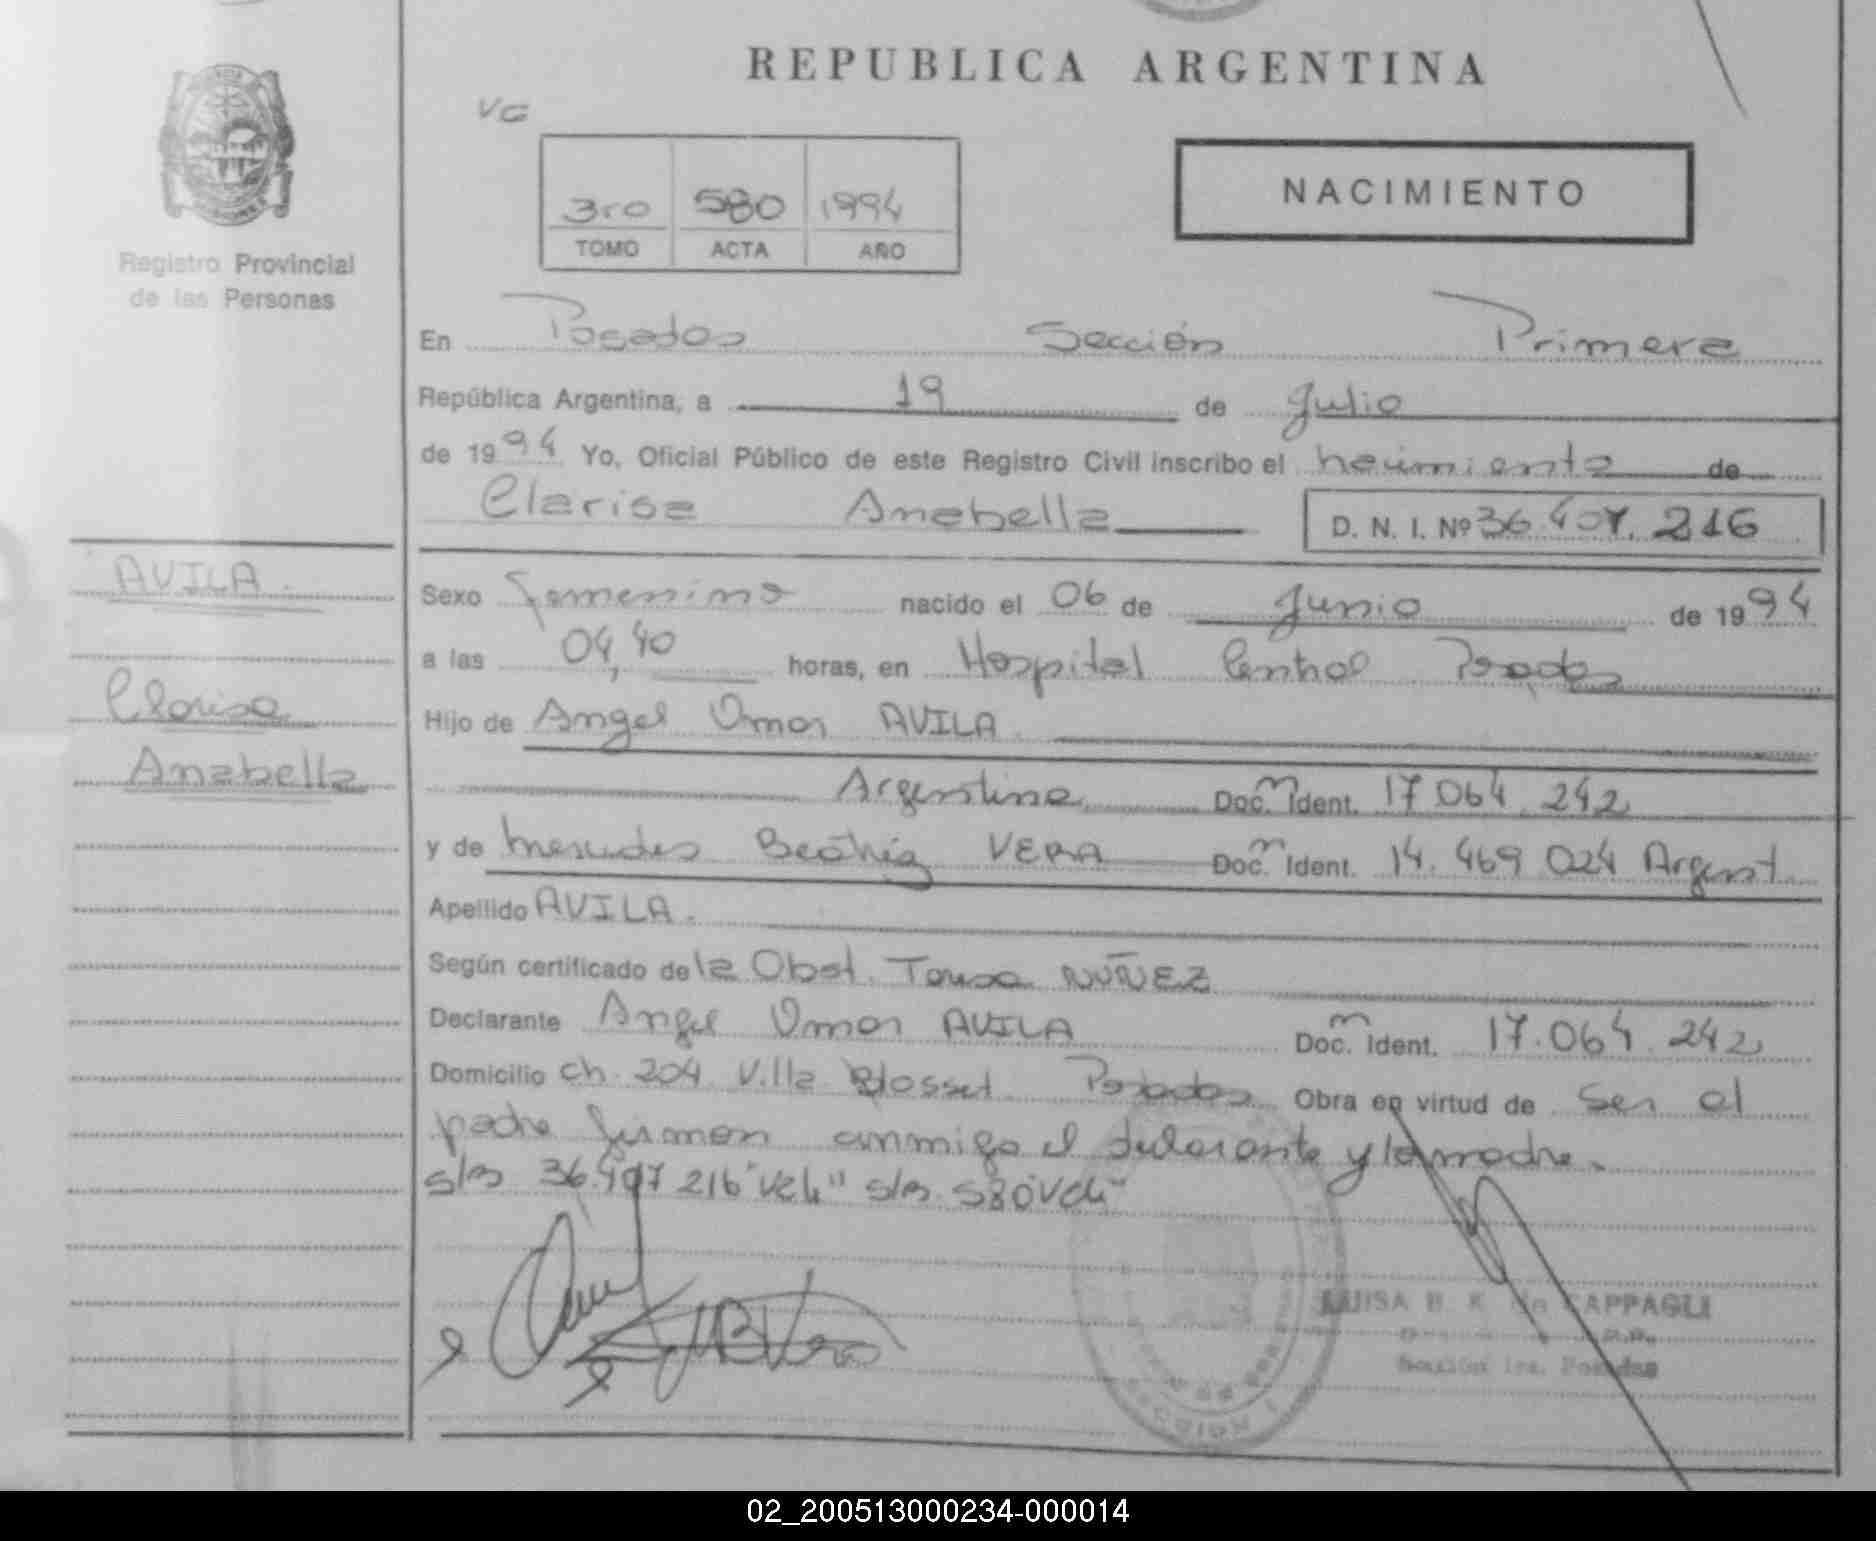 REPUBLICA ARGENTINA
VG
NACIMIENTO
3ro 580 1994
TOMO ACTA AÑO
Registro Provincial
de las Personas
En Posadas Sección Primera
República Argentina, a 19 de Julio
de 1994 Yo, Oficial Público de este Registro Civil inscribo el nacimiento de
Clarisa Anabella D. N. I. Nº 36.407.216
AVILA.
Clarisa
Anabella
Sexo femenino nacido el 06 de Junio de 1994
a las 04,40 horas, en Hospital Central Posadas
Hijo de Angel Omar AVILA
Argentina Doc. Ident. 17.064.242
y de Mercedes Beatriz VERA Doc. Ident. 14.469.024 Argent.
Apellido AVILA.
Según certificado de la Obst. NUÑEZ
Declarante Angel Omar AVILA Doc. Ident. 17.064.242
Domicilio Ch. 204 Villa Blosset Posadas Obra en virtud de ser el
padre firman conmigo el declarante y la madre.
s/b 36.407 216 "Vale" s/b. 580 "Vale"
LUISA B. K. de CAPPAGLI
Sección 1ra. Posadas
SECCION 1
02_200513000234-000014